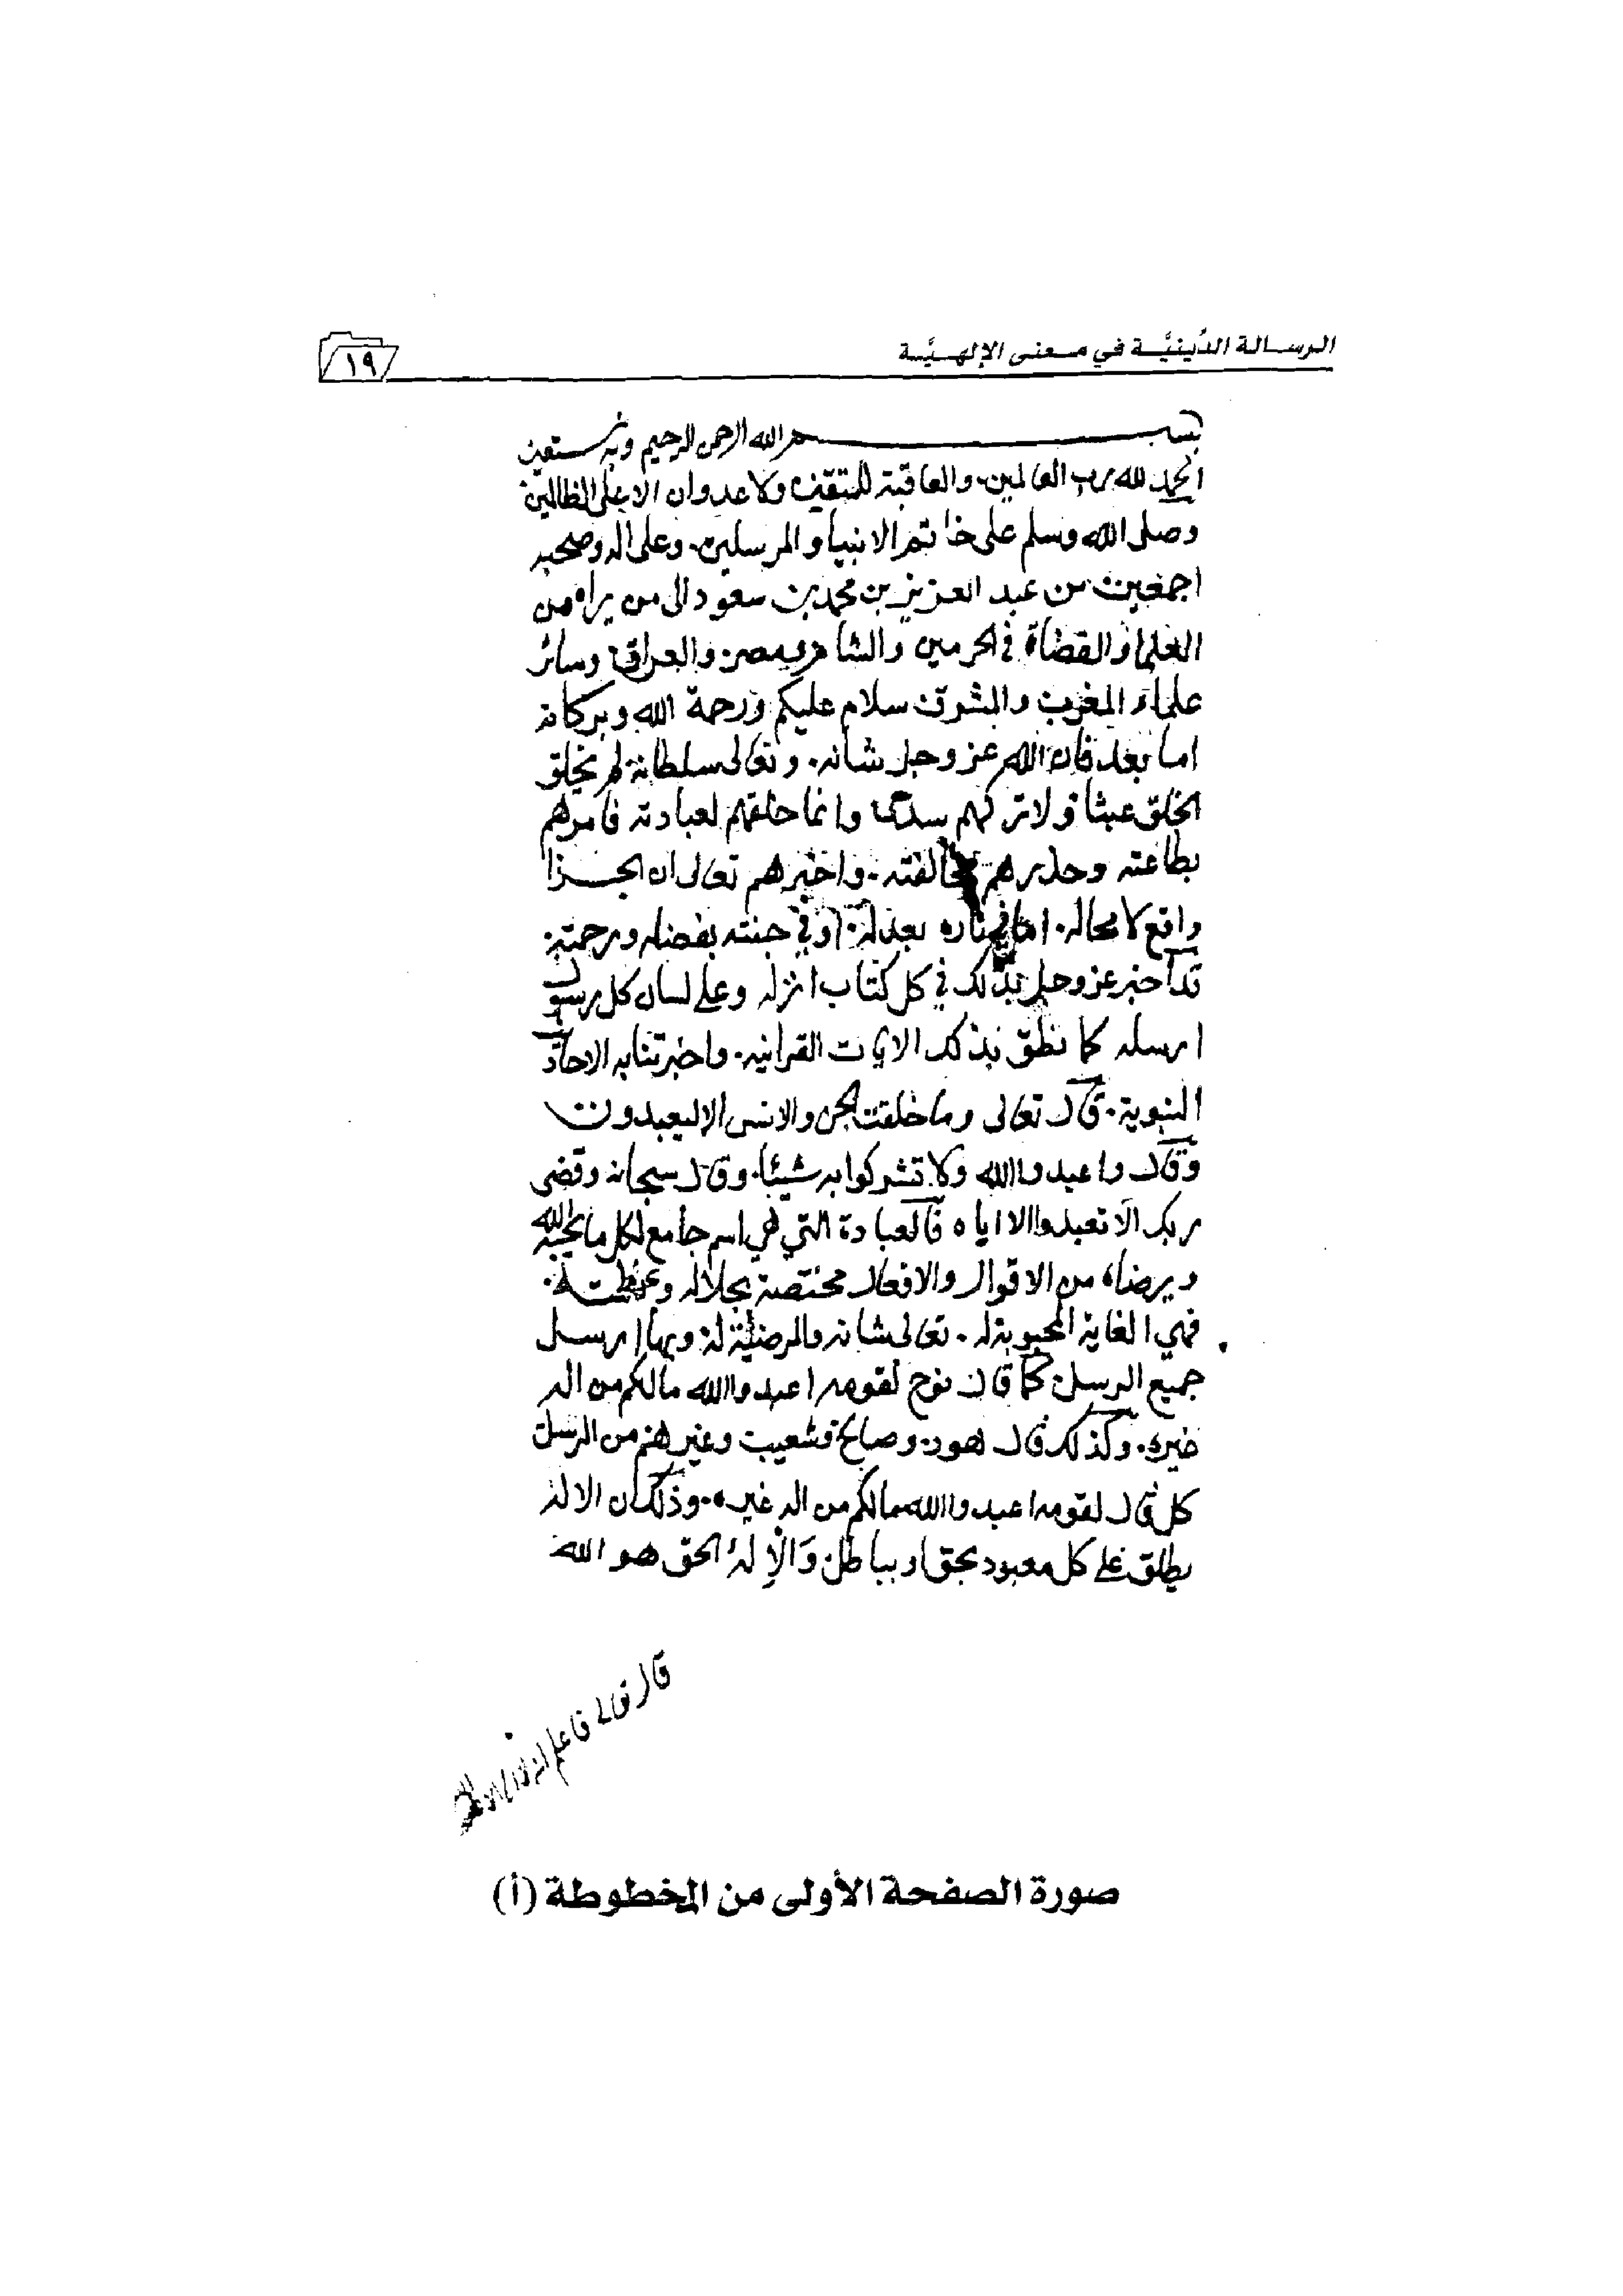 الرسالة الدِّينيَّة في معنى الإلهيَّة
١٩
بسم الله الرحمن الرحيم وبه نستعين
الحمد لله رب العالمين والعاقبة للمتقين ولا عدوان الا على الظالمين
وصلى الله وسلم على خاتم الانبيا والمرسلين. وعلى اله وصحبه
اجمعين من عبد العزيز بن محمد بن سعود الى من يراه من
العلماء والقضاة في الحرمين والشام ومصر والعراق وسائر
علماء المغرب والمشرق سلام عليكم ورحمة الله وبركاته
اما بعد فان الله عز وجل شأنه. وتعالى سلطانه لم يخلق
الخلق عبثا ولا تركهم سدى وانما خلقهم لعبادته فامرهم
بطاعته وحذرهم مخالفته. واخبرهم تعالى ان الجزا
واقع لا محاله. اما في ناره بعدله. او في جنته بفضله ورحمته
قد أخبر عز وجل بذلك في كل كتاب انزله وعلى لسان كل رسول
ارسله كما نطق بذلك الايات القرانيه. واخبرتنا به الاحاد
النبوية. قال تعالى وما خلقت الجن والانس الا ليعبدون
وقال واعبدوا الله ولا تشركوا به شيئا. وقال سبحانه وقضى
ربك الا تعبدوا الا اياه فالعبادة التي هي اسم جامع لكل ما يحبه الله
ويرضاه من الاقوال والافعال مختصة بجلاله وعظمته.
فهي الغاية المحبوبة له. تعالى شانه والمرضية له وبها ارسل
جميع الرسل كما قال نوح لقومه اعبدوا الله مالكم من اله
غيره. وكذلك قال هود. وصالح وشعيب وغيرهم من الرسل
كل قال لقومه اعبدوا الله مالكم من اله غيره. وذلك ان الاله
يطلق على كل معبود بحق او بباطل وَالْإِلهُ الحق هو الله
قال تعالى فاعلم انه لا اله الا الله
صورة الصفحة الأولى من المخطوطة (أ)